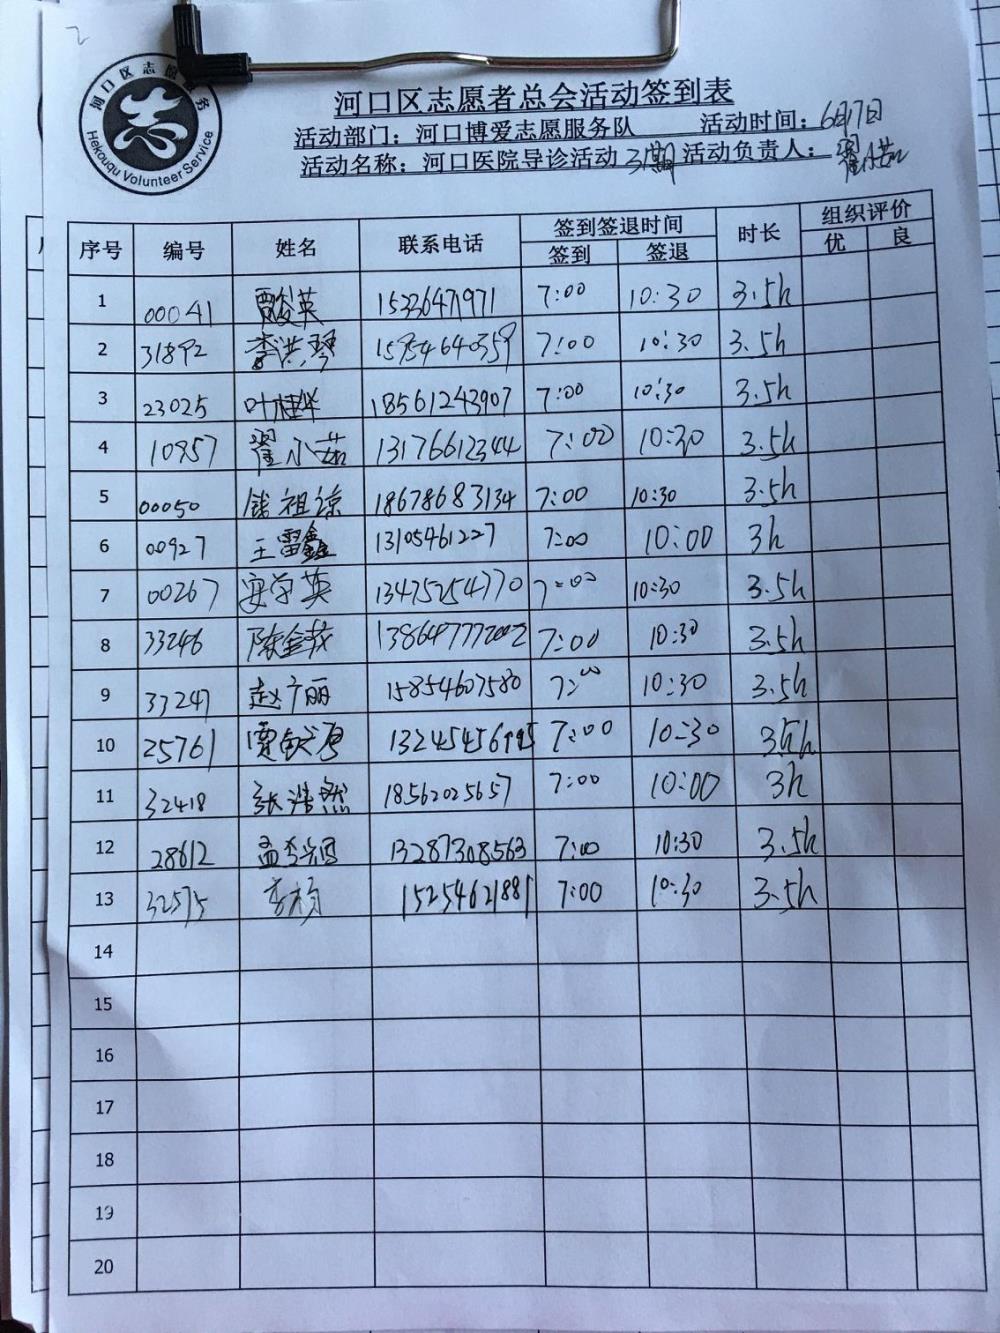 2
河口区志愿服务
Hekouqu Volunteer Service
河口区志愿者总会活动签到表
活动部门：河口博爱志愿服务队 活动时间：6月17日
活动名称：河口医院导诊活动31期 活动负责人：翟小茹
序号 编号 姓名 联系电话 签到签退时间 时长 组织评价
签到 签退 优 良
1 00041 贾爱英 15336471971 7:00 10:30 3.5h
2 31892 李洪琴 15954640359 7:00 10:30 3.5h
3 23025 叶桂华 18561243907 7:00 10:30 3.5h
4 10957 翟小茹 13176612344 7:00 10:30 3.5h
5 00050 祖 18678683134 7:00 10:30 3.5h
6 00927 王雷鑫 13105461227 7:00 10:00 3h
7 00267 安学英 13475254770 7:00 10:30 3.5h
8 33246 陈金花 7:00 10:30 3.5h
9 33247 赵广丽 15854607580 7:00 10:30 3.5h
10 25761 贾 7:00 10:30 3.5h
11 32418 张浩然 18562025657 7:00 10:00 3h
12 28612 孟 13287308563 7:00 10:30 3.5h
13 32575 李杨 15254621881 7:00 10:30 3.5h
14
15
16
17
18
19
20